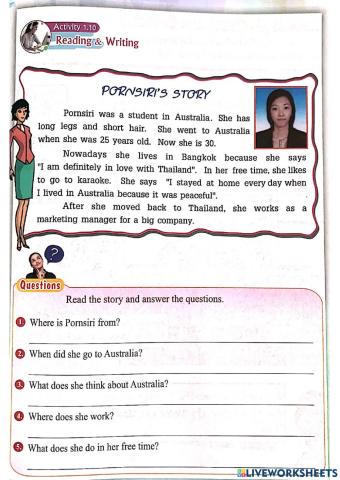 Activity 1.10
Reading & Writing
PORNSIRI'S STORY
Pornsiri was a student in Australia. She has
long legs and short hair. She went to Australia
when she was 25 years old. Now she is 30.
Nowadays she lives in Bangkok because she says
"I am definitely in love with Thailand". In her free time, she likes
to go to karaoke. She says "I stayed at home every day when
I lived in Australia because it was peaceful".
After she moved back to Thailand, she works as a
marketing manager for a big company.
?
Questions
Read the story and answer the questions.
1. Where is Pornsiri from?
2. When did she go to Australia?
3. What does she think about Australia?
4. Where does she work?
5. What does she do in her free time?
LIVEWORKSHEETS